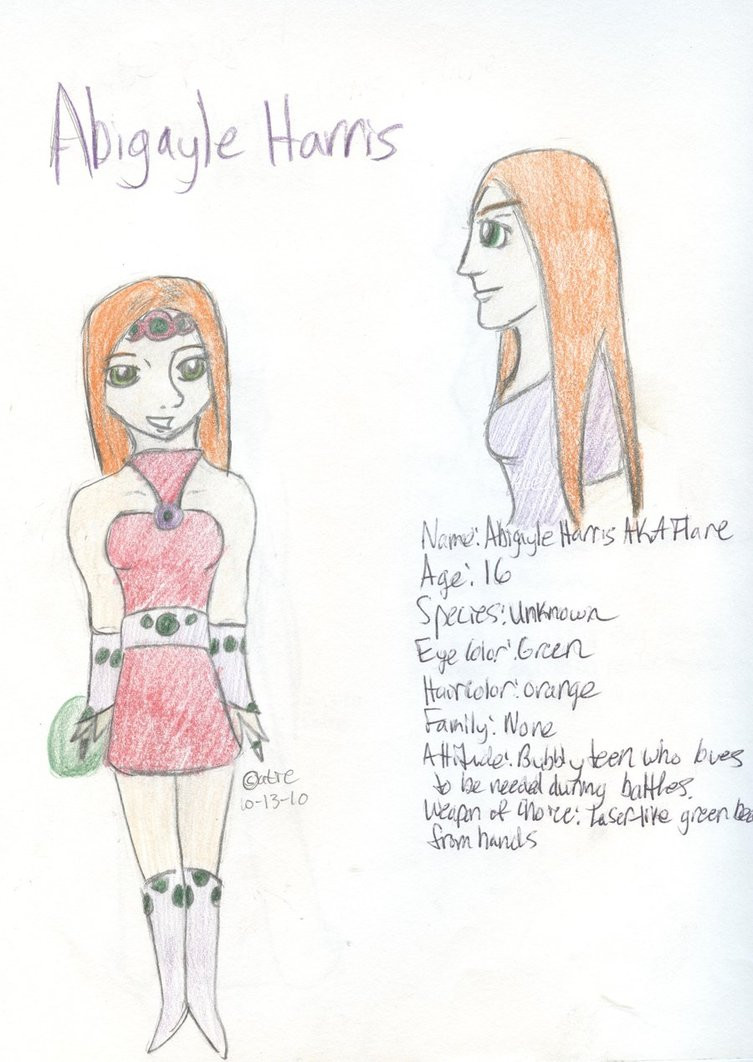 Abigayle Harris
Name: Abigayle Harris AKA Flare
Age: 16
Species: Unknown
Eye Color: Green
Haircolor: orange
Family: None
Attitude: Bubbly teen who loves
to be needed during battles.
Weapon of Choice: Laser-like green
from hands
10-13-10